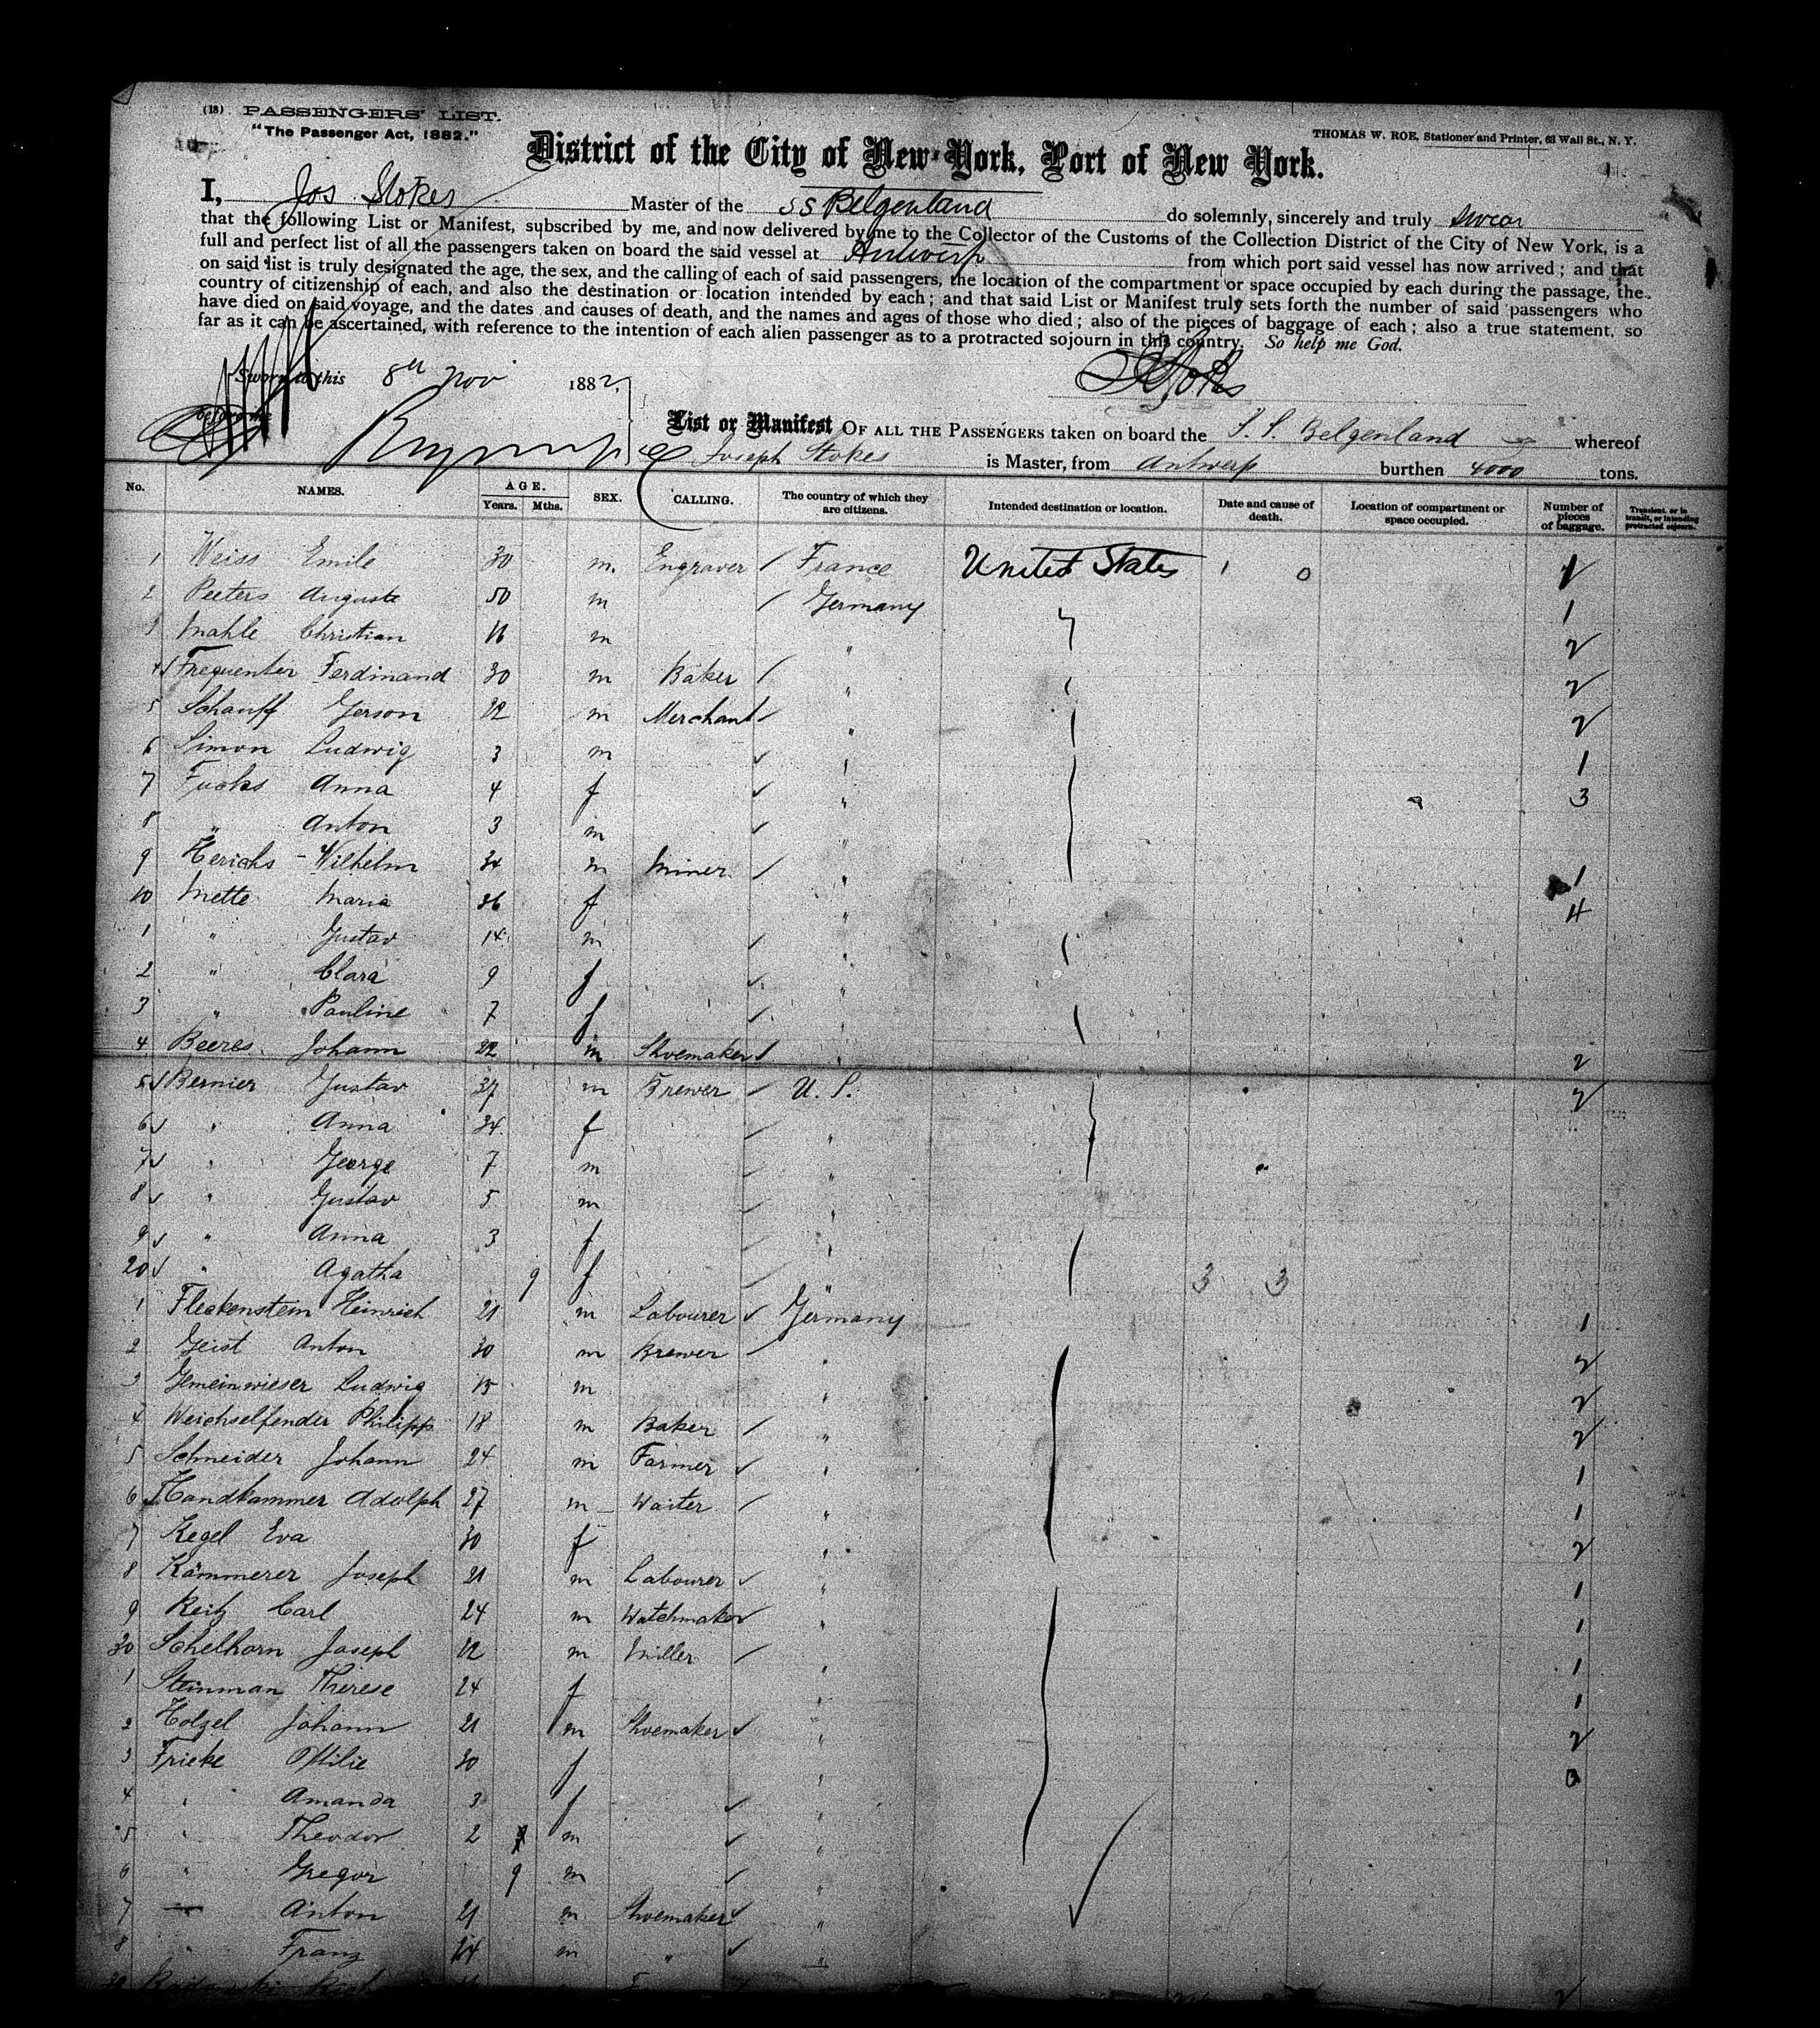 (18) PASSENGERS' LIST.
"The Passenger Act, 1882."
THOMAS W. ROE, Stationer and Printer, 63 Wall St., N. Y.
District of the City of New-York, Port of New York.
I, Jos Stokes Master of the SS Belgenland do solemnly, sincerely and truly swear
that the following List or Manifest, subscribed by me, and now delivered by me to the Collector of the Customs of the Collection District of the City of New York, is a
full and perfect list of all the passengers taken on board the said vessel at Antwerp from which port said vessel has now arrived; and that
on said list is truly designated the age, the sex, and the calling of each of said passengers, the location of the compartment or space occupied by each during the passage, the
country of citizenship of each, and also the destination or location intended by each; and that said List or Manifest truly sets forth the number of said passengers who
have died on said voyage, and the dates and causes of death, and the names and ages of those who died; also of the pieces of baggage of each; also a true statement, so
far as it can be ascertained, with reference to the intention of each alien passenger as to a protracted sojourn in this country. So help me God.
Sworn to this 8th Nov 1882,
before me
J Stokes
List or Manifest OF ALL THE PASSENGERS taken on board the S. S. Belgenland whereof
Joseph Stokes is Master, from Antwerp burthen 4000 tons.
No. NAMES. AGE. Years. Mths. SEX. CALLING. The country of which they are citizens. Intended destination or location. Date and cause of death. Location of compartment or space occupied. Number of pieces of baggage. Transient or in transit, or intending protracted sojourn.
1 Weiss Emile 30 m. Engraver France United States 1 0
2 Peeters Auguste 50 m Germany 1
3 Mahle Christian 16 m " 2
4 Frequenter Ferdinand 30 m Baker " 2
5 Schauff Gerson 22 m Merchant " 2
6 Simon Ludwig 3 m " 1
7 Fuchs Anna 4 f " 3
8 " Anton 3 m "
9 Herichs Wilhelm 34 m Miner " 1
10 Mette Maria 36 f " 4
1 " Gustav 14 m "
2 " Clara 9 f "
3 " Pauline 7 f "
4 Beeres Johann 22 m Shoemaker " 2
5 Bernier Gustav 37 m Brewer U. S. 2
6 " Anna 34 f "
7 " George 7 m "
8 " Gustav 5 m "
9 " Anna 3 f "
20 " Agatha 9 f " 3 3
1 Fleckenstein Heinrich 21 m Labourer Germany 1
2 Geist Anton 30 m Brewer " 2
3 Gemeinwieser Ludwig 15 m " 2
4 Weichselfender Philipp 18 m Baker " 2
5 Schneider Johann 24 m Farmer " 1
6 Handkammer Adolph 27 m Waiter " 1
7 Kegel Eva 30 f " 2
8 Kämmerer Joseph 21 m Labourer " 1
9 Reitz Carl 24 m Watchmaker " 1
30 Schelhorn Joseph 22 m Miller " 1
1 Steinman Therese 24 f " 1
2 Holzel Johann 21 m Shoemaker " 2
3 Fricke Ottilie 30 f " 3
4 " Amanda 3 f "
5 " Theodor 2 m "
6 " Gregor 9 m "
7 Anton 21 m Shoemaker "
8 " Franz 24 m " "
2